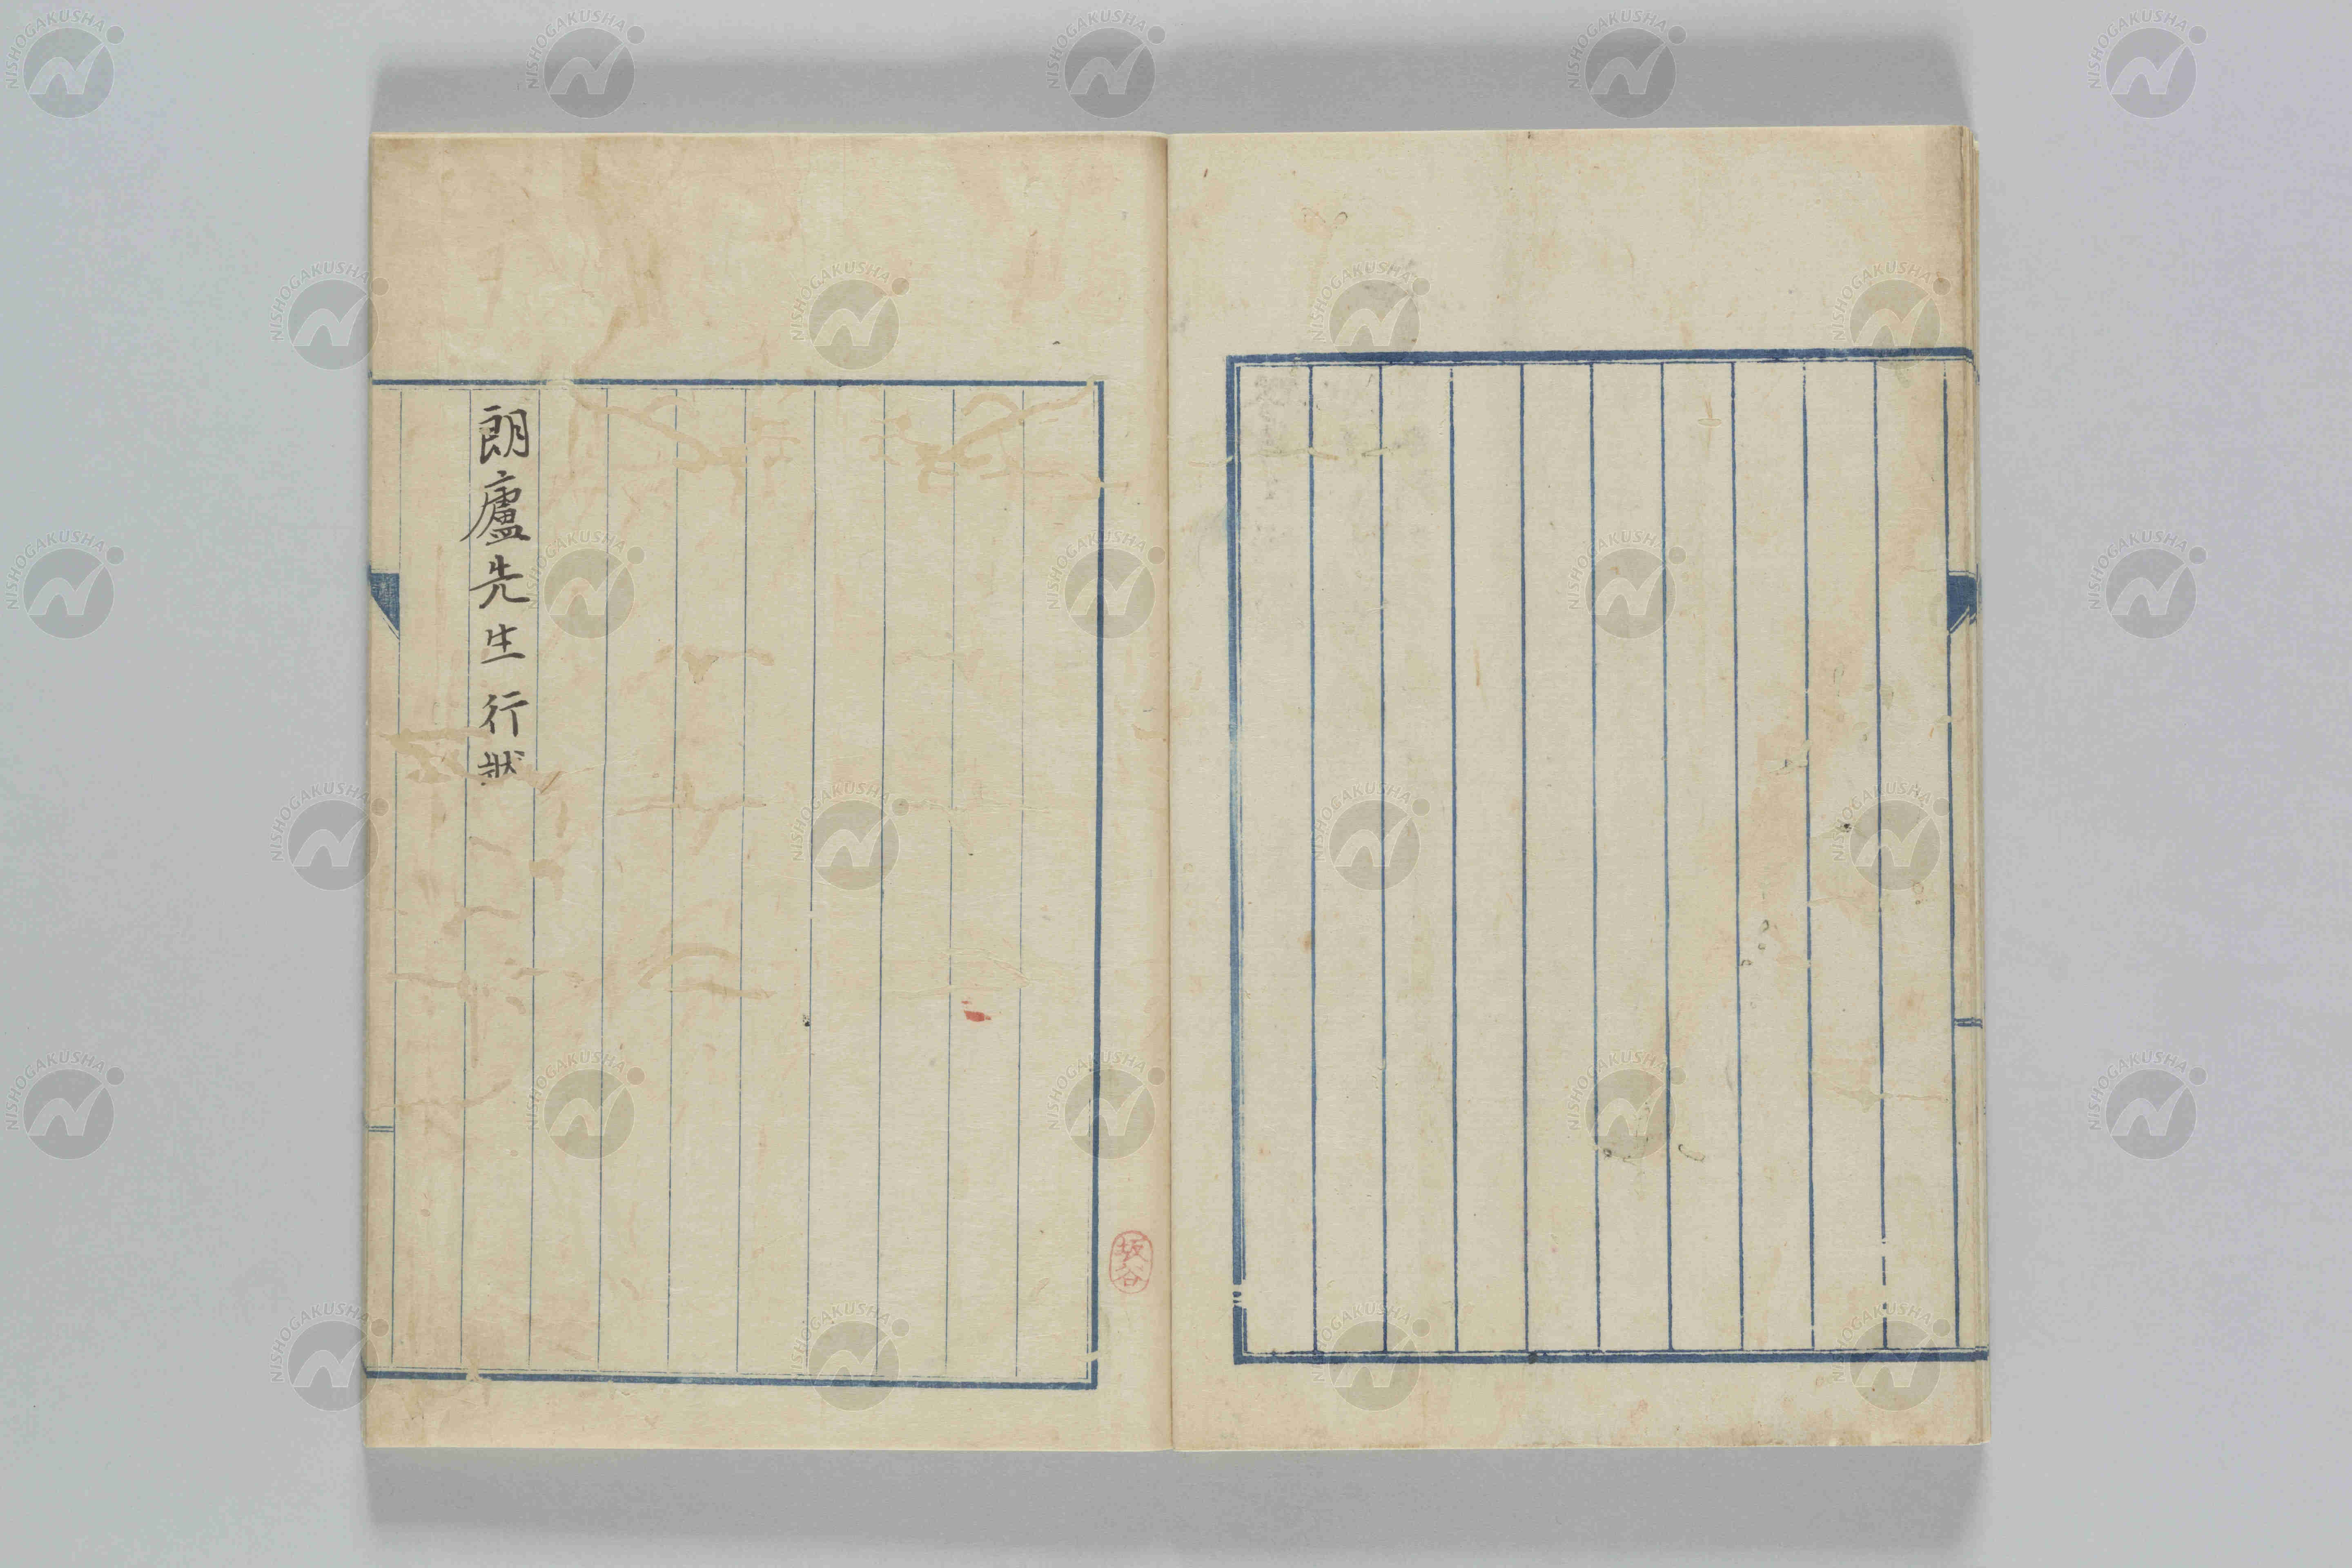 朗廬先生行狀
坂谷
NISHOGAKUSHA